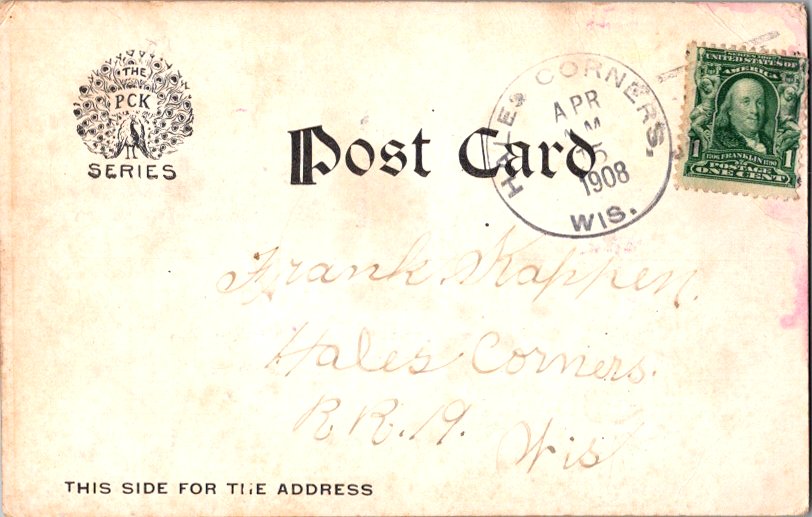 THE
PCK
SERIES
Post Card
HALES CORNERS,
APR
AM
1908
WIS.
SERIES 1902
UNITED STATES OF
AMERICA
1706 FRANKLIN 1790
1 POSTAGE 1
ONE CENT
Frank Kappen.
Hales Corners.
R.R. 19.
Wis
THIS SIDE FOR THE ADDRESS